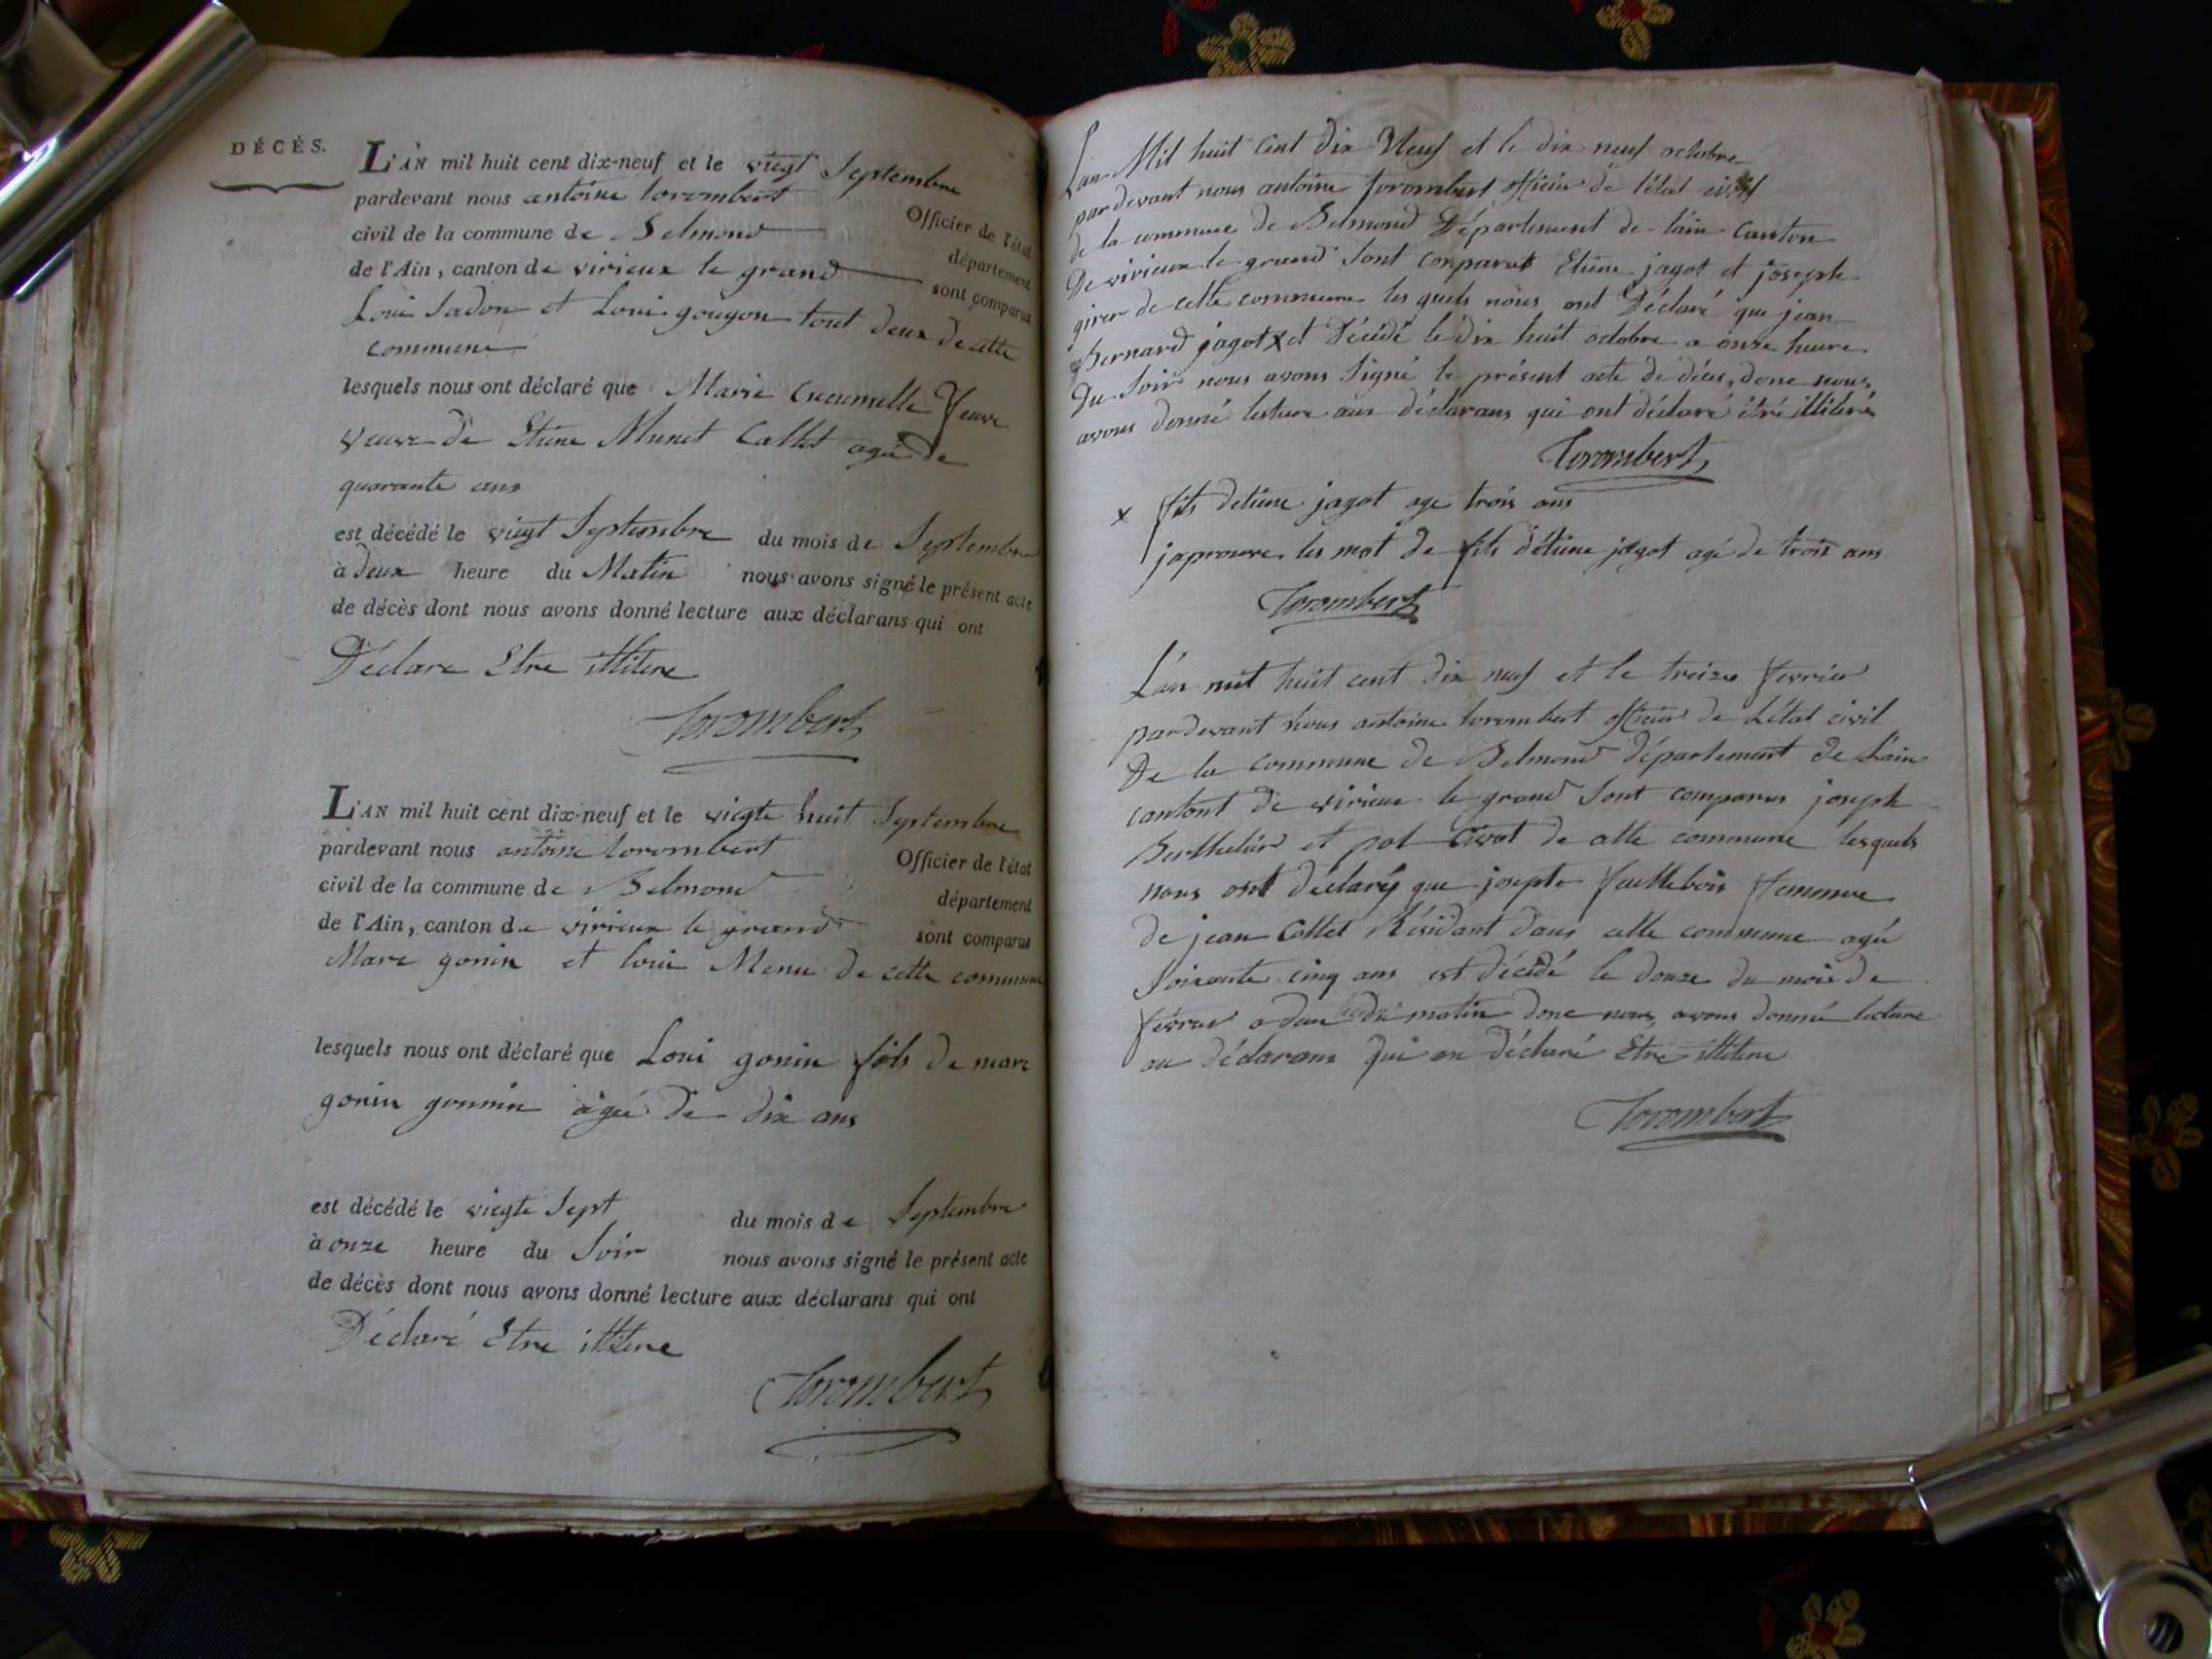 DÉCÈS.
L'AN mil huit cent dix-neuf et le viegt Septembre
pardevant nous antoine torombert Officier de l'état
civil de la commune de Belmond département
de l'Ain, canton de virieux le grand sont comparus
Loui Sadon et Loui gougon tout deux de cette
commune
lesquels nous ont déclaré que Marie veuve
veuve de Etiene Munet Collet agée de
quarante ans
est décédé le viegt Septembre du mois de Septembre
à deux heure du Matin nous avons signé le présent acte
de décès dont nous avons donné lecture aux déclarans qui ont
Déclare Etre illitere
Torombert
L'AN mil huit cent dix-neuf et le viegte huit Septembre
pardevant nous antoine torombert Officier de l'état
civil de la commune de Belmond département
de l'Ain, canton de virieux le grand sont comparus
Marc gonin et loui Menu de cette commune
lesquels nous ont déclaré que Loui gonin fils de marc
gonin gonnin agée de dix ans
est décédé le viegte Sept du mois de Septembre
à onze heure du Soir nous avons signé le présent acte
de décès dont nous avons donné lecture aux déclarans qui ont
Déclaré Etre illitere
Torombert
Lan Mil huit Cent dix Neuf et le dix neuf octobre
par devant nous antoine torombert officier de l'état civil
de la commune de Belmond Département de lain Canton
De virieux le grand Sont comparut Etiene jagot et joseph
girer de cette commune les quels nous ont Déclaré que jean
Bernard jagot x et Décédé le dix huit octobre a onze heure
Du Soir nous avons Signé le présent acte de décès, donc nous
avons donné lecture aux déclarans qui ont déclaré étré illiteré
Torombert
x fils detiene jagot age trois ans
japrouve les mot de fils d'étiene jagot agé de trois ans
Torombert
L'an mil huit cent dix neuf et le treize fevrier
pardevant nous antoine torombert officier de L'état civil
De la commune de Belmond département de Lain
cantont de virieux le grand Sont comparus joseph
Berthelier et pol de cette commune lesquels
nous ont déclaré que josepte fuellebois femme
de jean Collet Résidant dans cette commune agée
Soixante cinq ans est décédé le douze du mois de
fevrier a deux du matin donc nous avons donné lecture
au déclarans qui on déclaré Etre illitere
Torombert